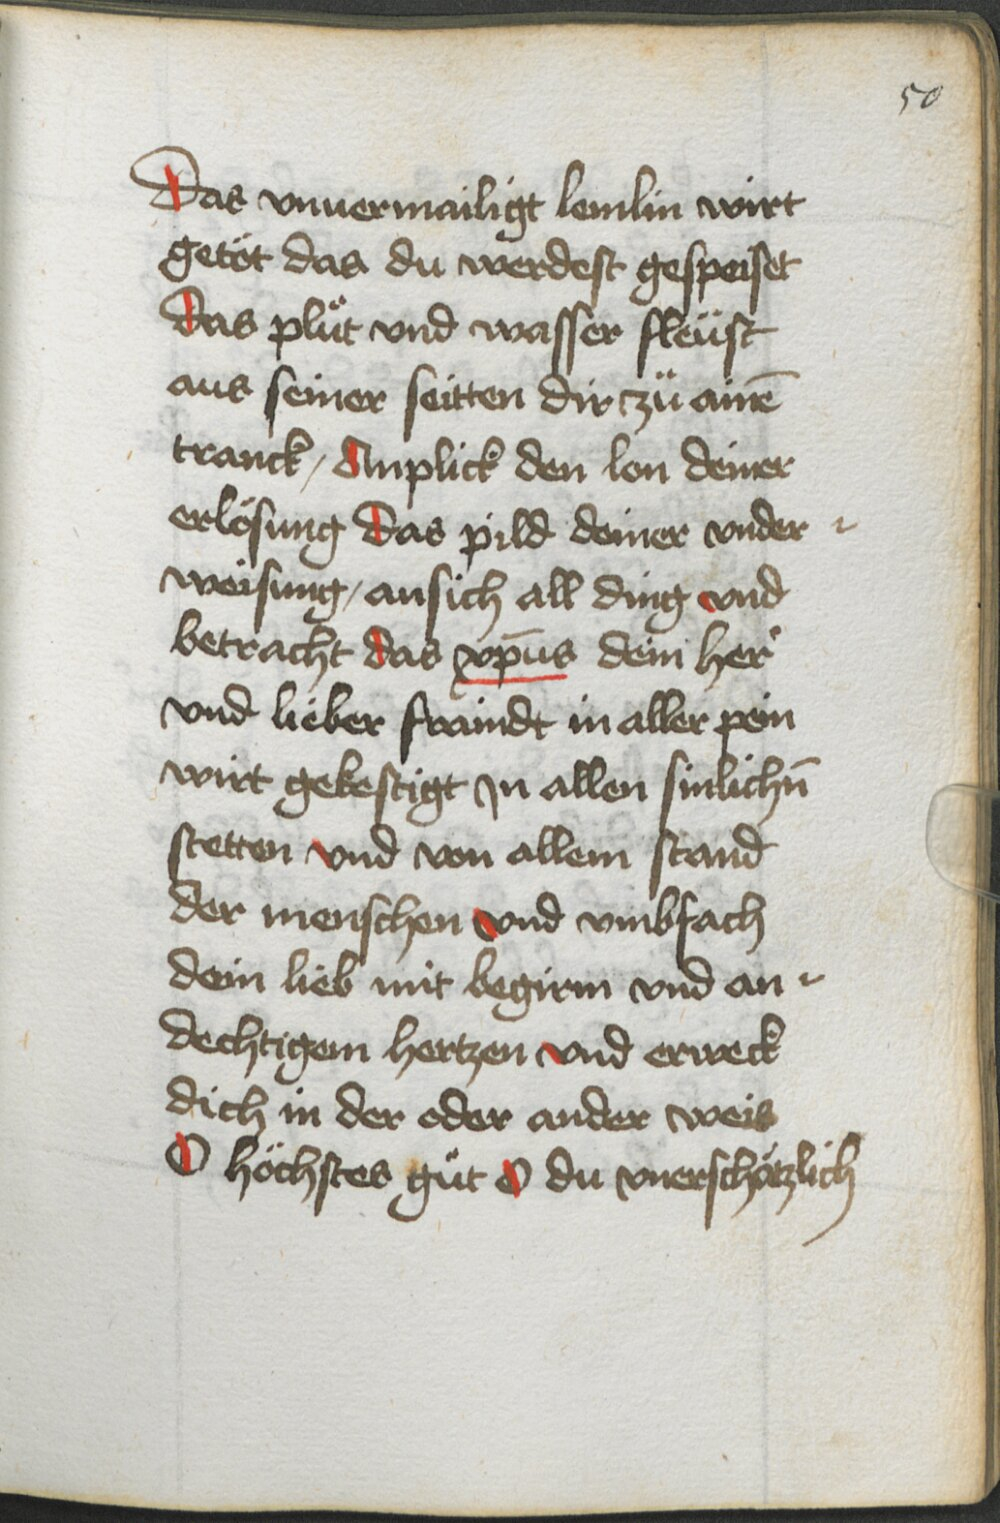 50
Das vnuermailigt lemlin wirt
getöt das du werdest gespeiset
Das plüt vnd wasser fleüst
aus seiner seitten dir zü ainē
tranck / Anplick den lon deiner
erlösung Das pild deiner vnder-
weisung / ansich all ding vnd
betracht das xp̄us dein her
vnd lieber fraindt in aller pein
wirt gekestigt Jn allen sinlichn̄
stetten vnd von allem stand
der menschen vnd vmbfach
dein lieb mit begirm vnd an-
dechtigem hertzen vnd erweck
dich in der oder ander weis
O höchstes güt O du vnerschätzlich